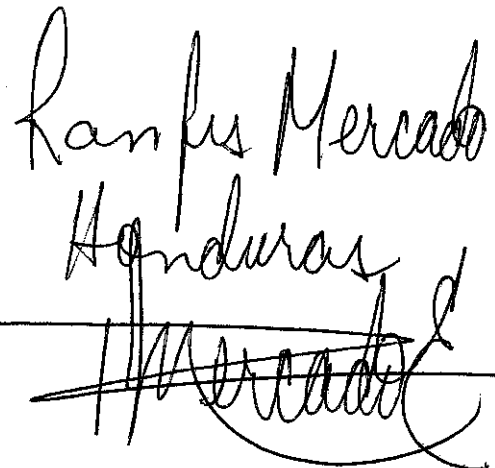 Ranfis Mercado
Honduras
Mercado